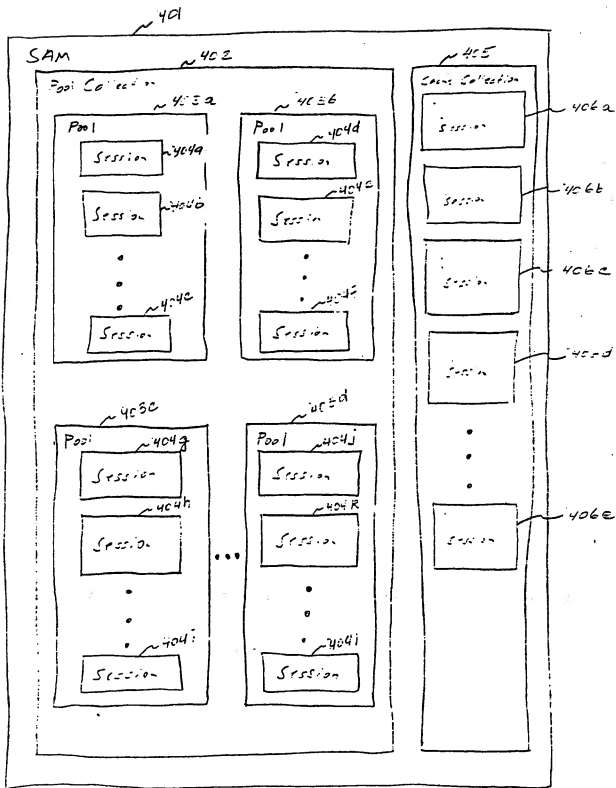 401
SAM
402
Pool Collection
403a
Pool
Session
404a
Session
404b
Session
404c
403b
Pool
404d
Session
404e
Session
404f
Session
403c
Pool
404g
Session
404h
Session
404i
Session
...
403d
Pool
404j
Session
404k
Session
Session
405
Collection
Session
406a
Session
406b
Session
406c
Session
406d
Session
406e